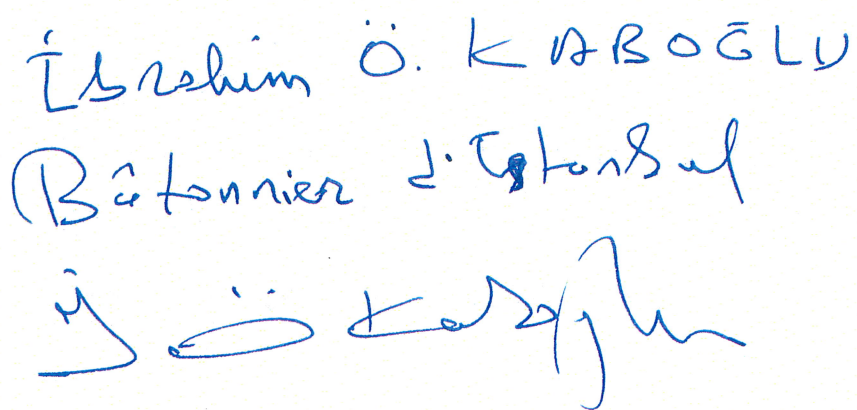 İbrahim Ö. KABOĞLU
Bâtonnier d'Istanbul
İ Ö Kaboğlu